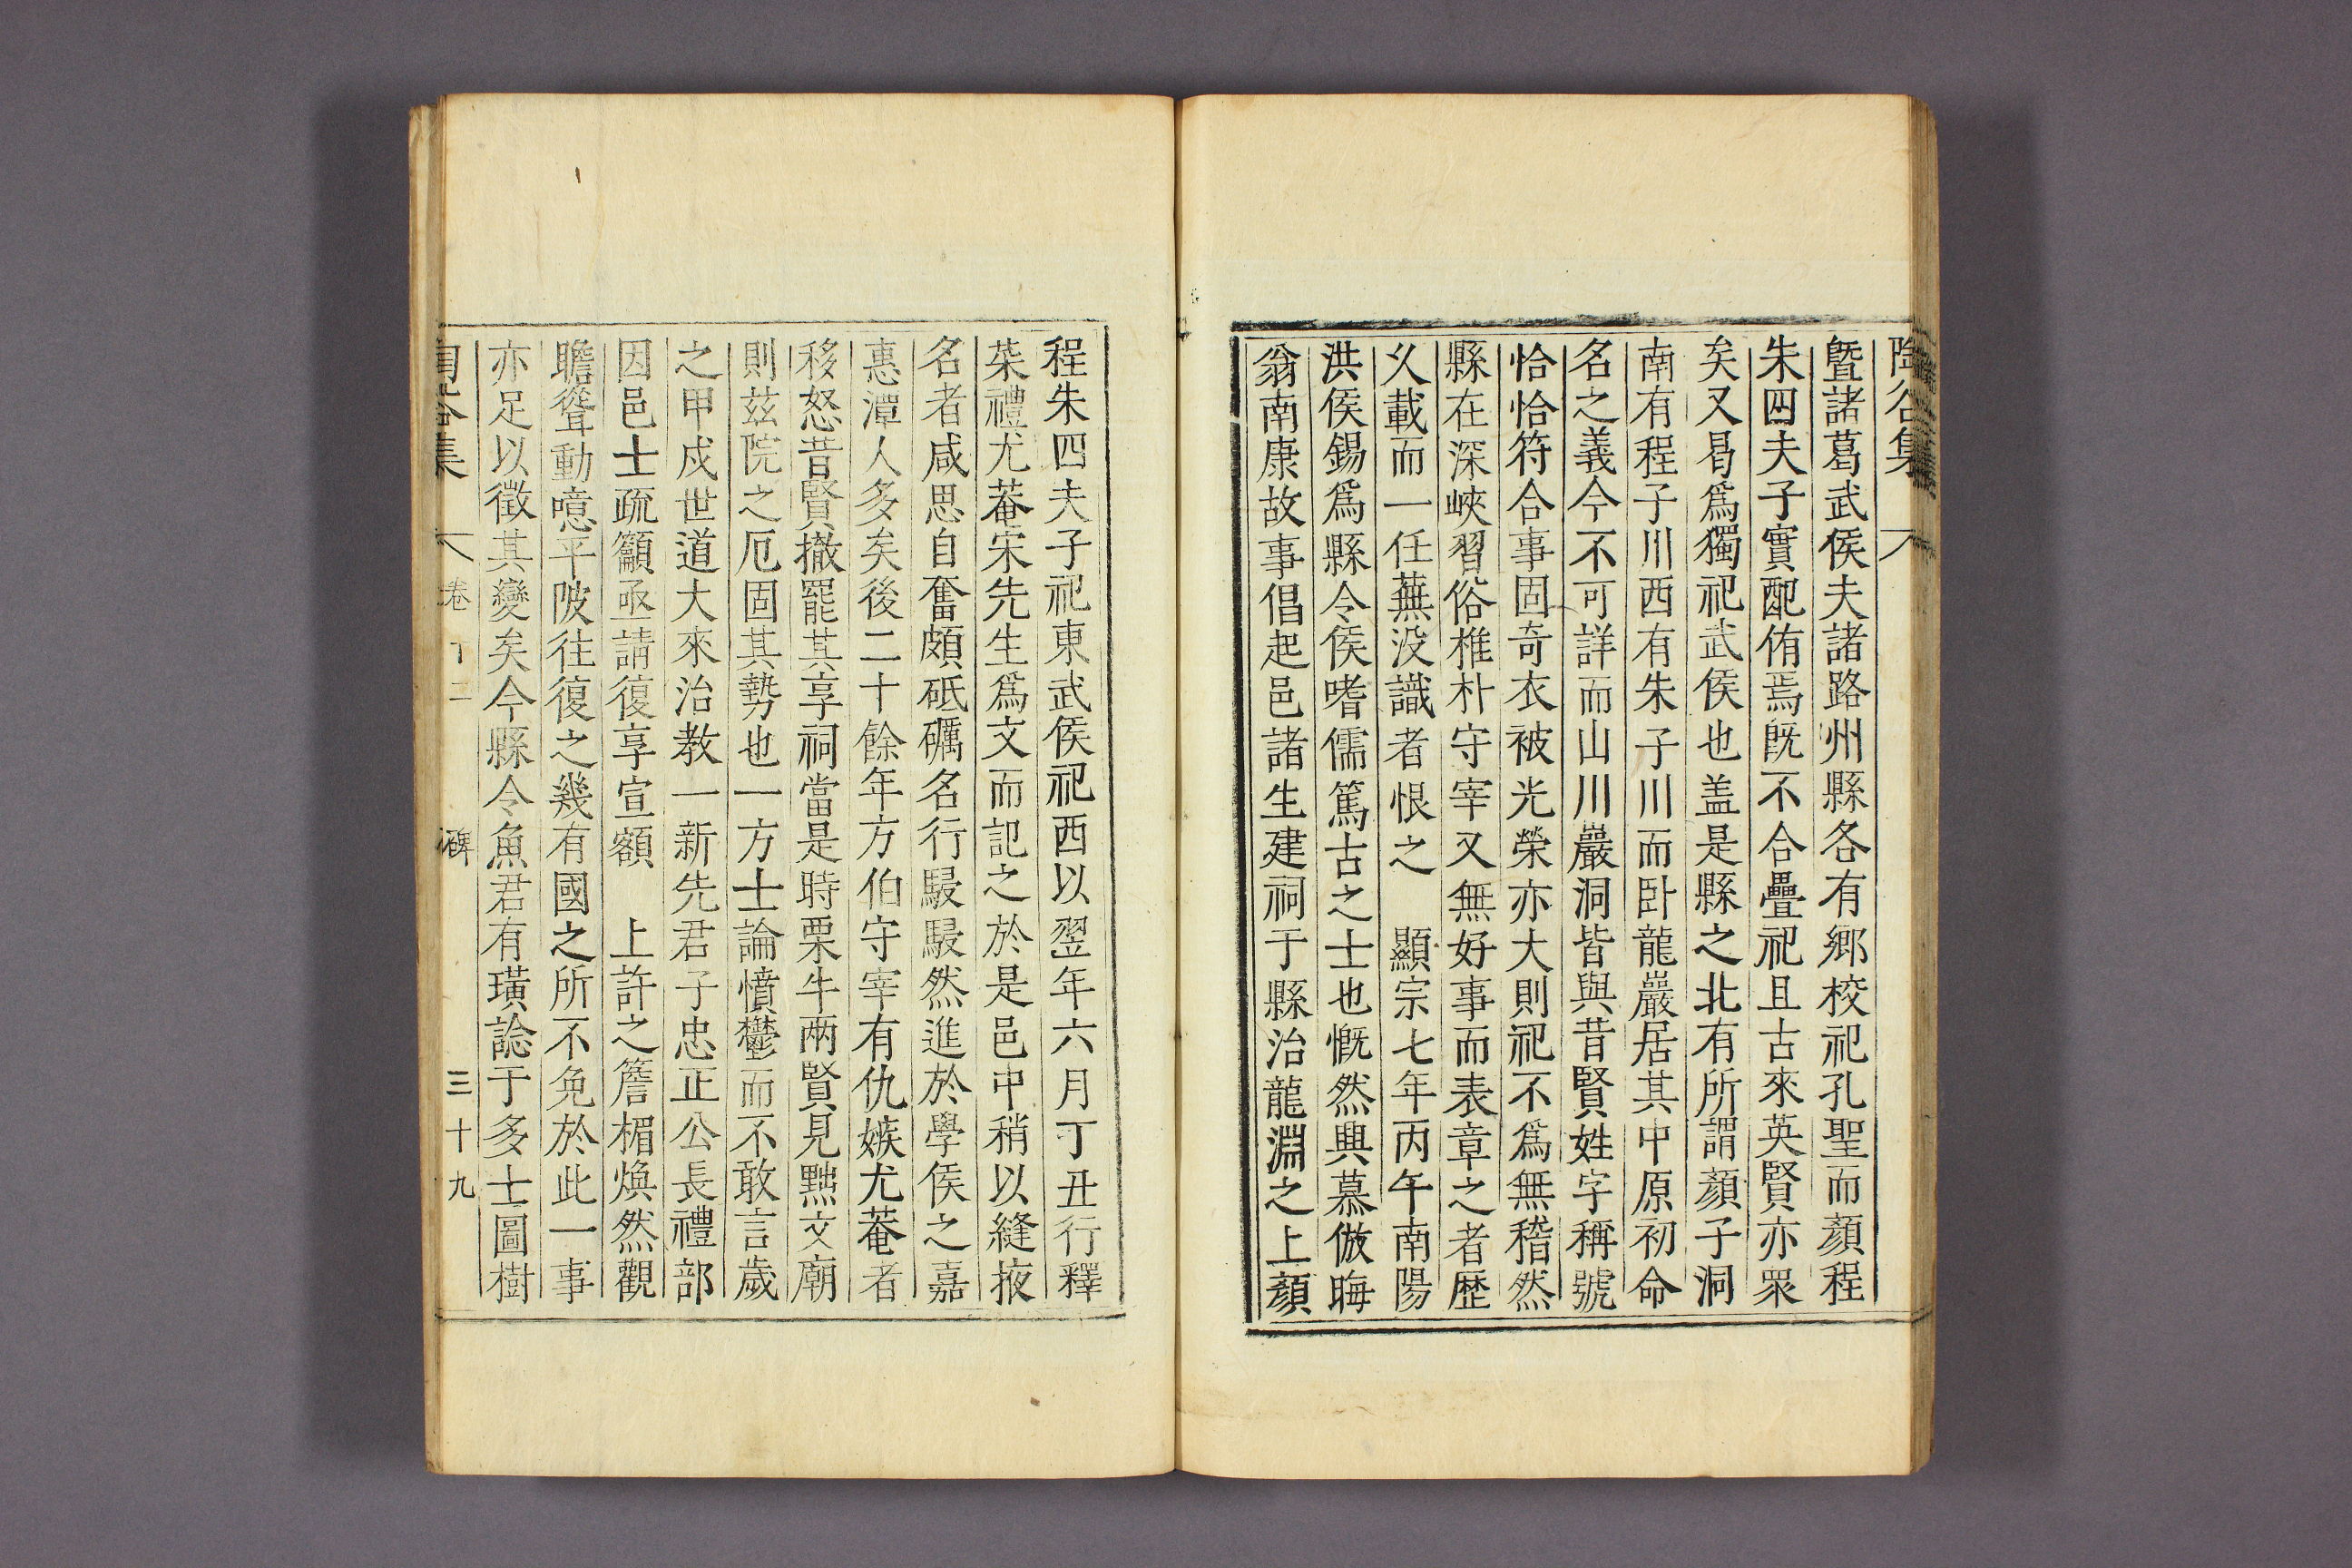 陶谷集
曁諸葛武侯夫諸路州縣各有鄕校祀孔聖而顏程
朱四夫子實配侑焉旣不合疊祀且古來英賢亦衆
矣又曷爲獨祀武侯也盖是縣之北有所謂顏子洞
南有程子川西有朱子川而臥龍巖居其中原初命
名之義今不可詳而山川巖洞皆與昔賢姓字稱號
恰恰符合事固奇衣被光榮亦大則祀不爲無稽然
縣在深峽習俗椎朴守宰又無好事而表章之者歷
乆載而一任蕪没識者恨之 顯宗七年丙午南陽
洪侯錫爲縣令侯嗜儒篤古之士也慨然興慕倣晦
翁南康故事倡起邑諸生建祠于縣治龍淵之上顏
程朱四夫子祀東武侯祀西以翌年六月丁丑行釋
菜禮尤菴宋先生爲文而記之於是邑中稍以縫掖
名者咸思自奮頗砥礪名行駸駸然進於學侯之嘉
惠潭人多矣後二十餘年方伯守宰有仇嫉尤菴者
移怒昔賢撤罷其享祠當是時栗牛兩賢見黜文廟
則玆院之厄固其勢也一方士論憤鬱而不敢言歲
之甲戌世道大來治教一新先君子忠正公長禮部
因邑士疏籲亟請復享宣額 上許之簷楣煥然觀
瞻聳動噫平陂往復之幾有國之所不免於此一事
亦足以徵其變矣今縣令魚君有璜諗于多士圖樹
陶谷集 卷十二 碑 三十九